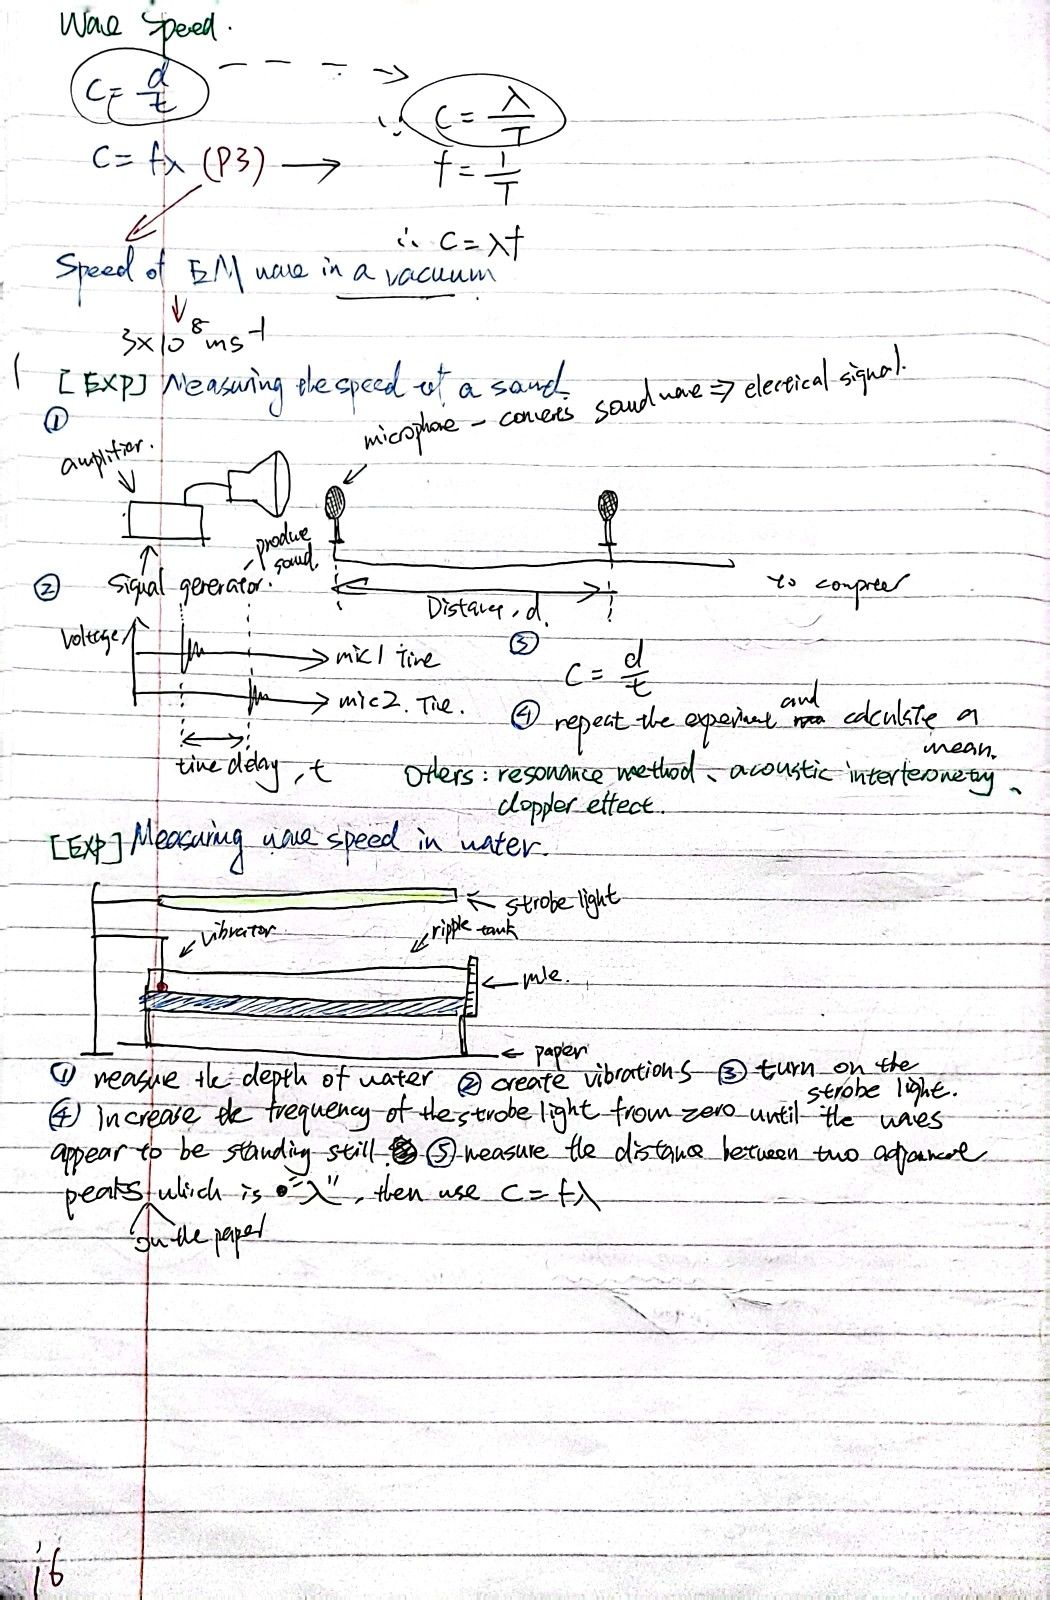 Wave Speed.
C = d/t
∵ C = λ/T
C = fλ (P3) → f = 1/T
∴ C = λf
Speed of EM wave in a vacuum
3×10⁸ ms⁻¹
[EXP] Measuring the speed of a sound.
① microphone - converts sound wave ⇒ electrical signal.
amplifier.
produce sound.
② Signal generator.
to computer
Distance, d.
Voltage
mic1 Time
mic2. Time.
time delay, t
③ C = d/t
④ repeat the experiment and calculate a mean.
Others: resonance method、acoustic interferometry、
doppler effect.
[EXP] Measuring wave speed in water.
strobe light
vibrator
ripple tank
rule.
paper
① measure the depth of water ② create vibrations ③ turn on the strobe light.
④ Increase the frequency of the strobe light from zero until the waves
appear to be standing still. ⑤ measure the distance between two adjacent
peaks which is "λ", then use C = fλ
on the paper
16